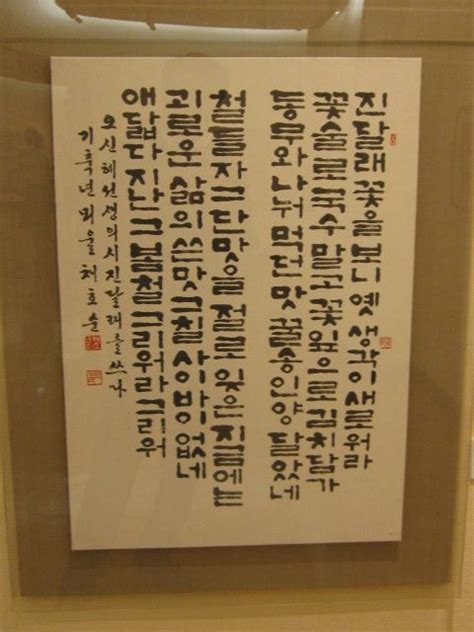 진달래꽃을보니옛생각이새로워라
꽃술로국수말고꽃잎으로김치담가
동무와나눠먹던맛꿀송인양달았네
철들자그단맛을절로잊은지금에는
괴로운삶의쓴맛그칠사이바이없네
애닯다지난그봄철그리워라그리워
오신혜선생의시진달래를쓰다
기축년